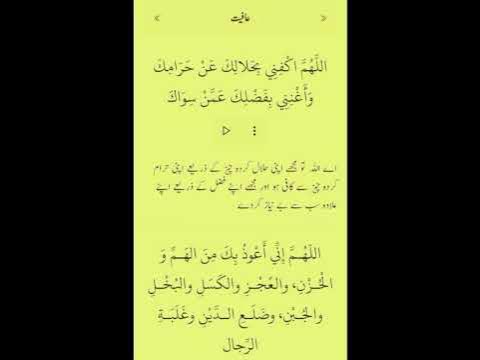 عافیت
اللَّهُمَّ اكْفِنِي بِحَلَالِكَ عَنْ حَرَامِكَ
وَأَغْنِنِي بِفَضْلِكَ عَمَّنْ سِوَاكَ
اے اللہ تو مجھے اپنی حلال کردہ چیز کے ذریعے اپنی حرام
کردہ چیز سے کافی ہو اور مجھے اپنے فضل کے ذریعے اپنے
علاوہ سب سے بے نیاز کردے
اللَّهُمَّ إِنِّي أَعُوذُ بِكَ مِنَ الهَمِّ وَ
الْحُزْنِ، والعَجْزِ والكَسَلِ والبُخْلِ
والجُبْنِ، وضَلَعِ الدَّيْنِ وغَلَبَةِ
الرِّجال